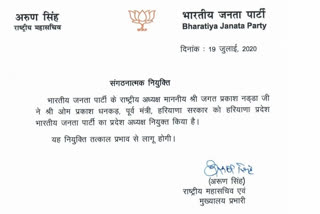 अरुण सिंह
राष्ट्रीय महासचिव
भारतीय जनता पार्टी
Bharatiya Janata Party
दिनांक : 19 जुलाई, 2020
संगठनात्मक नियुक्ति
भारतीय जनता पार्टी के राष्ट्रीय अध्यक्ष माननीय श्री जगत प्रकाश नड्डा जी
ने श्री ओम प्रकाश धनकड़, पूर्व मंत्री, हरियाणा सरकार को हरियाणा प्रदेश
भारतीय जनता पार्टी का प्रदेश अध्यक्ष नियुक्त किया है।
यह नियुक्ति तत्काल प्रभाव से लागू होगी।
(अरूण सिंह)
राष्ट्रीय महासचिव एवं
मुख्यालय प्रभारी